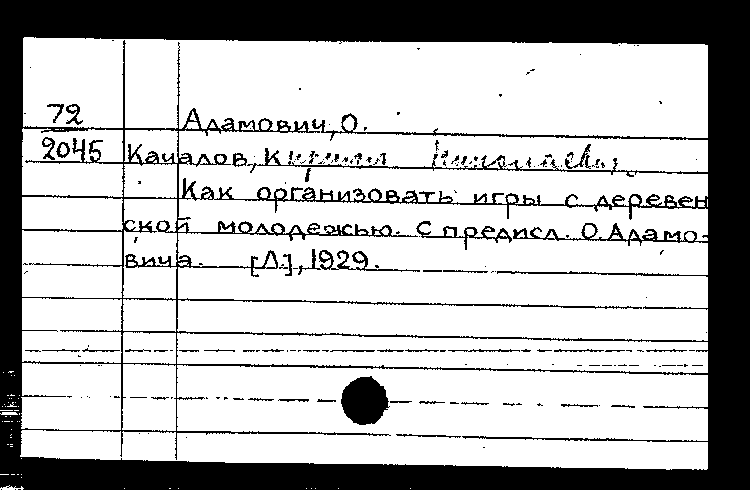 72
Адамович, О.
2045 Качалов, Кирилл Николаевич.
Как организовать игры с деревен
ской молодежью. С предисл. О. Адамо-
вича. [Л.], 1929.